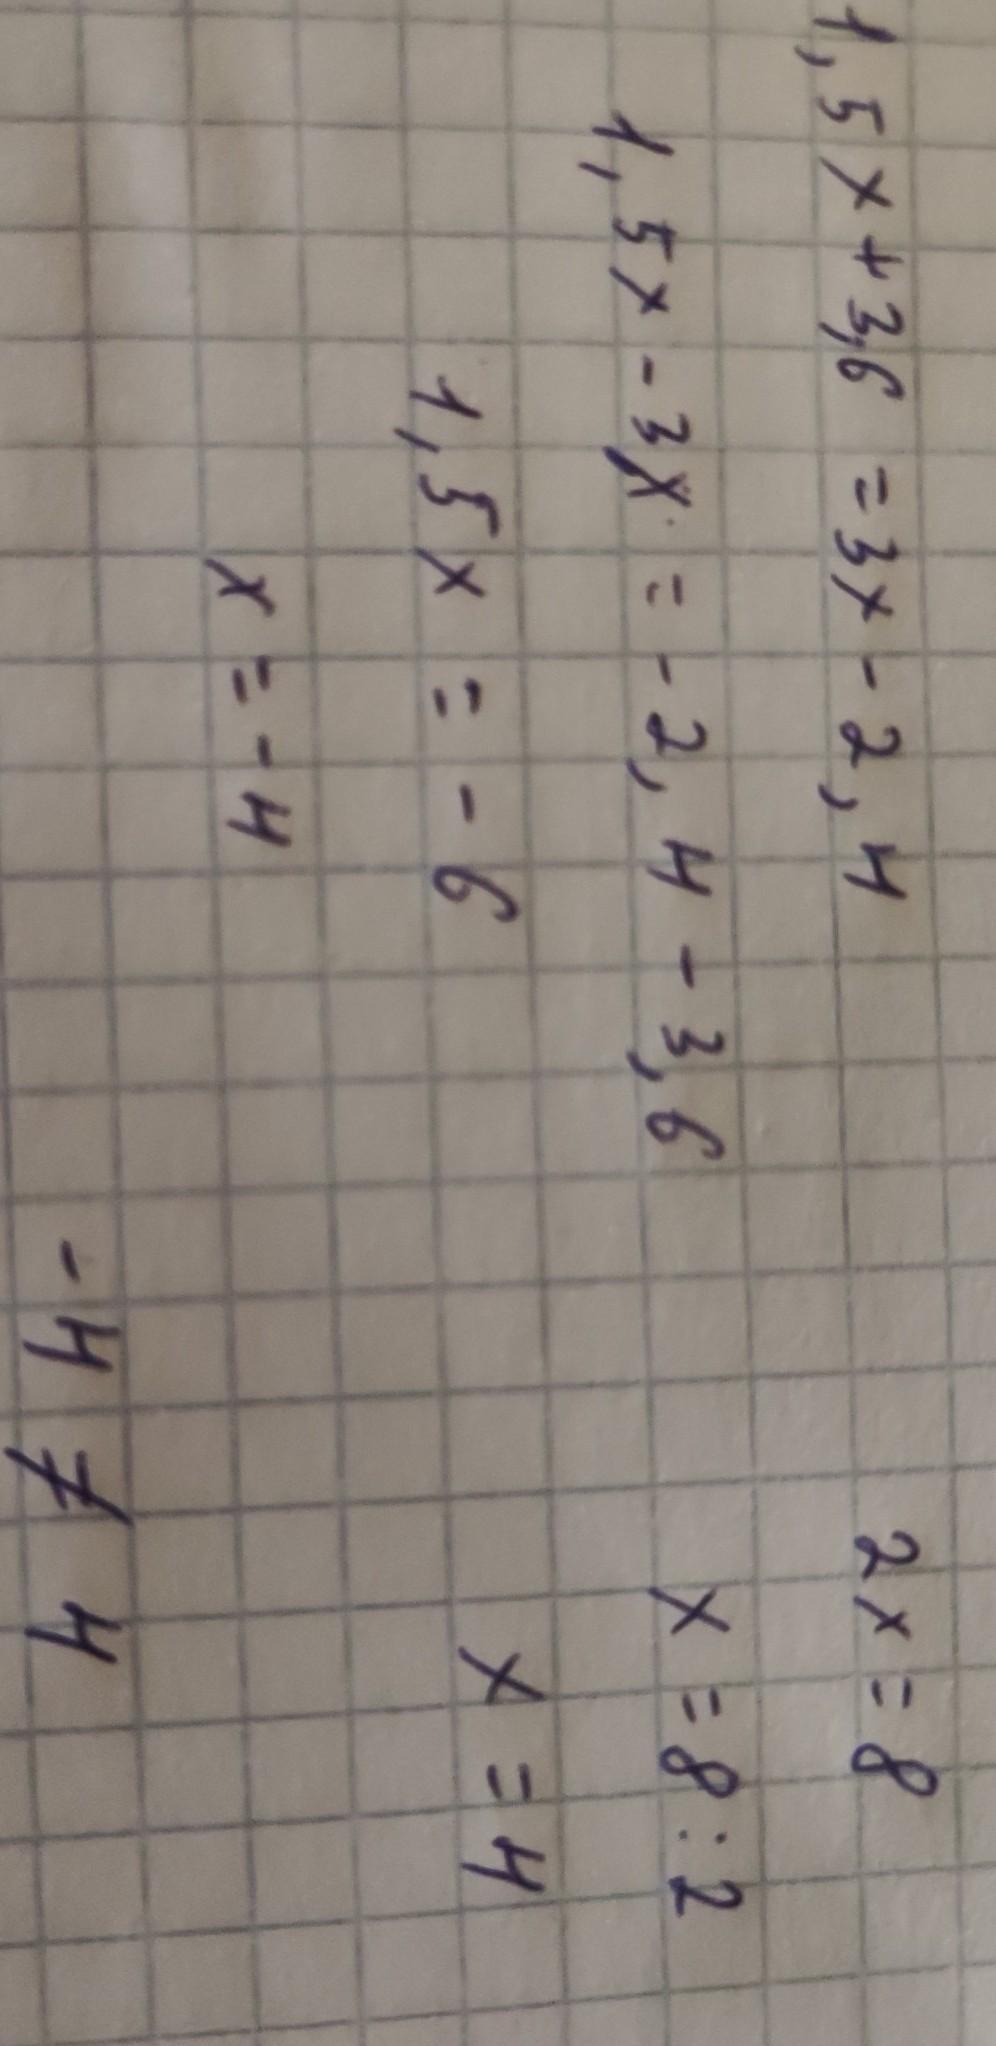 1,5x + 3,6 = 3x - 2,4
1,5x - 3x = - 2,4 - 3,6
1,5x = - 6
x = - 4
2x = 8
x = 8 : 2
x = 4
- 4 ≠ 4